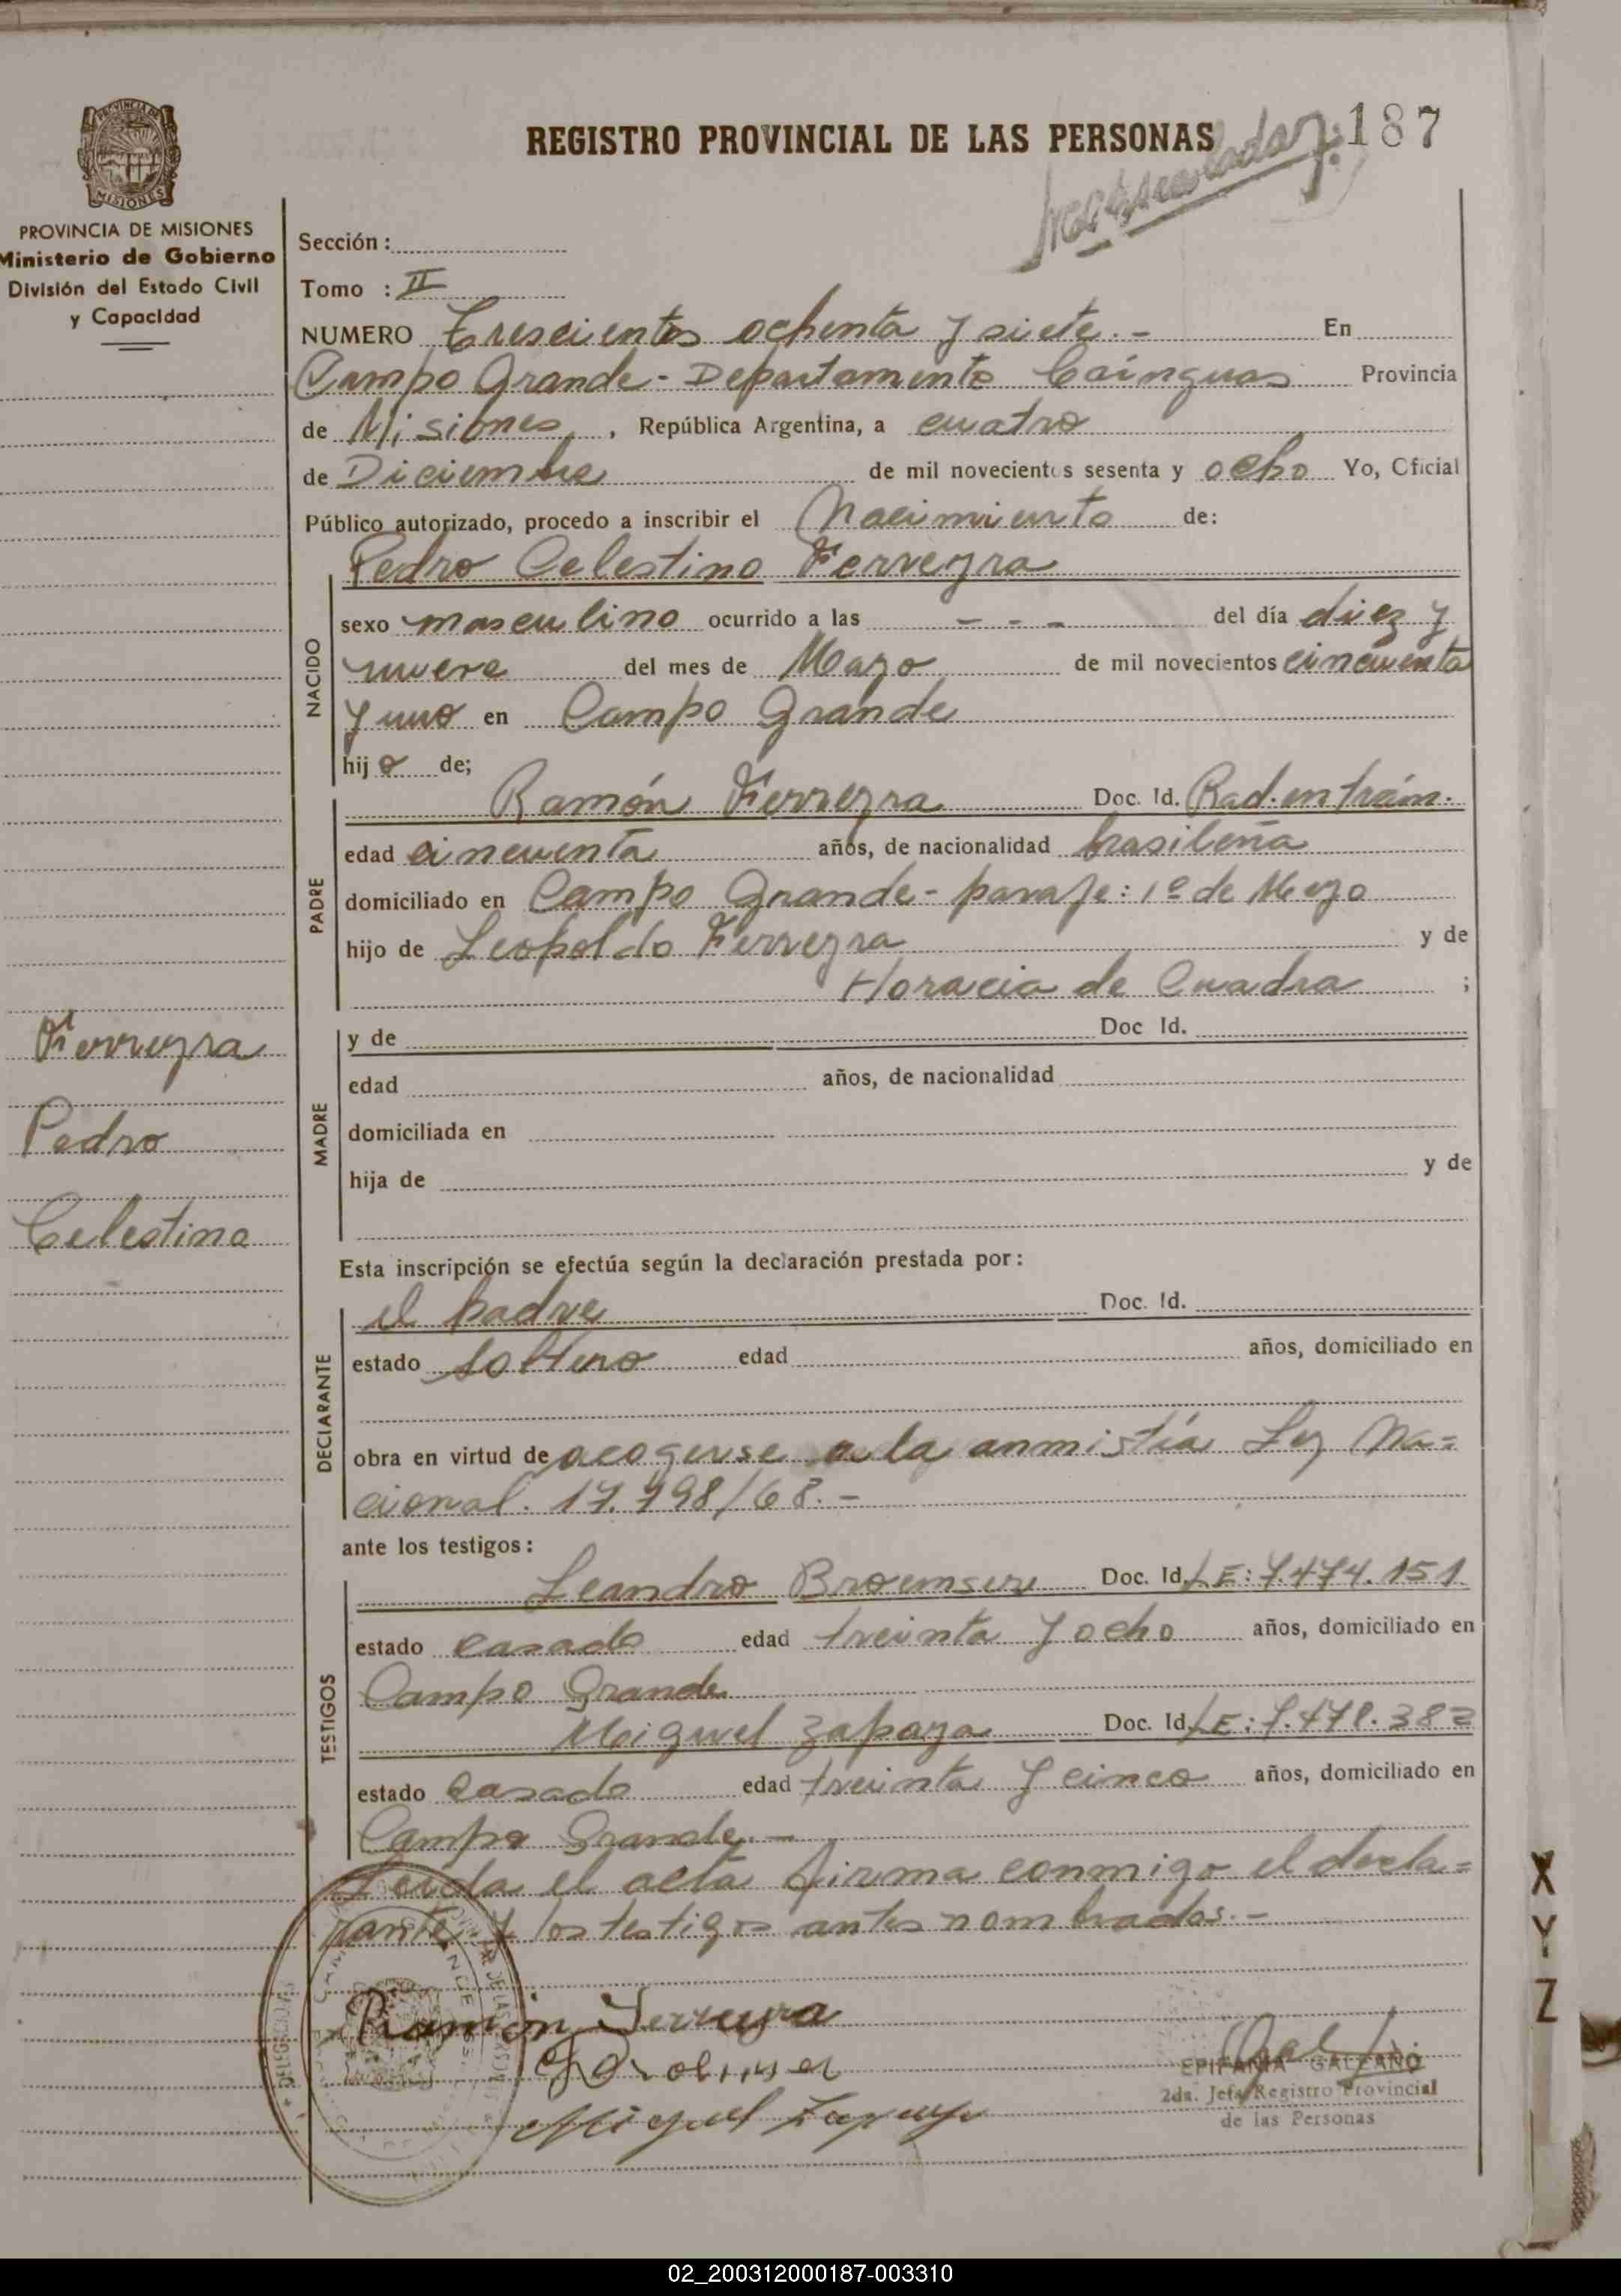 REGISTRO PROVINCIAL DE LAS PERSONAS
187
PROVINCIA DE MISIONES
Ministerio de Gobierno
División del Estado Civil
y Capacidad
Sección :
Tomo : II
NUMERO Trescientos ochenta y siete.- En
Campo Grande - Departamento Cainguas Provincia
de Misiones, República Argentina, a cuatro
de Diciembre de mil novecientos sesenta y ocho Yo, Oficial
Público autorizado, procedo a inscribir el Nacimiento de:
Pedro Celestino Ferreyra
NACIDO
sexo masculino ocurrido a las - - - del día diez y
nueve del mes de Mayo de mil novecientos cincuenta
y uno en Campo Grande
hijo de;
PADRE
Ramón Ferreyra Doc. Id. Rad. en trám.
edad cincuenta años, de nacionalidad brasileña
domiciliado en Campo Grande - paraje: 1º de Mayo
hijo de Leopoldo Ferreyra y de
Horacia de Cuadra ;
MADRE
y de Doc Id.
edad años, de nacionalidad
domiciliada en
hija de y de
Ferreyra
Pedro
Celestino
Esta inscripción se efectúa según la declaración prestada por :
DECLARANTE
el padre Doc. Id.
estado soltero edad años, domiciliado en
obra en virtud de acogerse a la anmistía Ley Na=
cional. 17.798/68.-
ante los testigos :
TESTIGOS
Leandro Doc. Id. LE: 7.474.151
estado casado edad treinta y ocho años, domiciliado en
Campo Grande
Miguel Zapaya Doc. Id. LE: 7.478.382
estado casado edad treinta y cinco años, domiciliado en
Campo Grande.-
Leída el acta firma conmigo el decla=
rante y los testigos antes nombrados.-
Ramón Ferreyra
Miguel
EPIFANIA GALEANO
2da. Jefa Registro Provincial
de las Personas
X
Y
Z
02_200312000187-003310